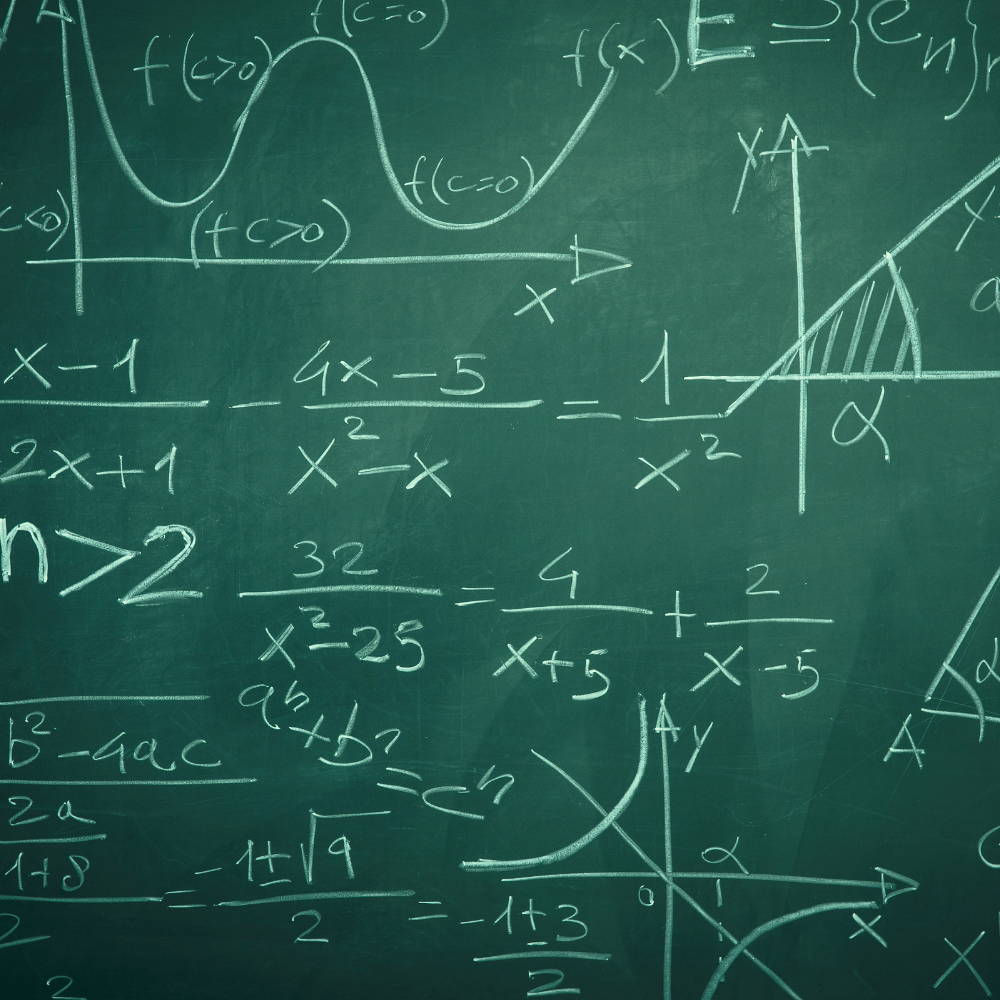 f(c=0)
f(c>0) f(x) E = {e_n}
A
f(c=0)
c<0) (f c>0)
x
y
α
(x - 1)/(2x + 1) - (4x - 5)/(x² - x) = 1/x²
n>2
32/(x² - 25) = 4/(x + 5) + 2/(x - 5)
aⁿ + b² = cⁿ
b² - 4ac
2a
1+8
2
= (-1±√9)/2 = (-1±3)/2
2
y
α
0
x
A α
x